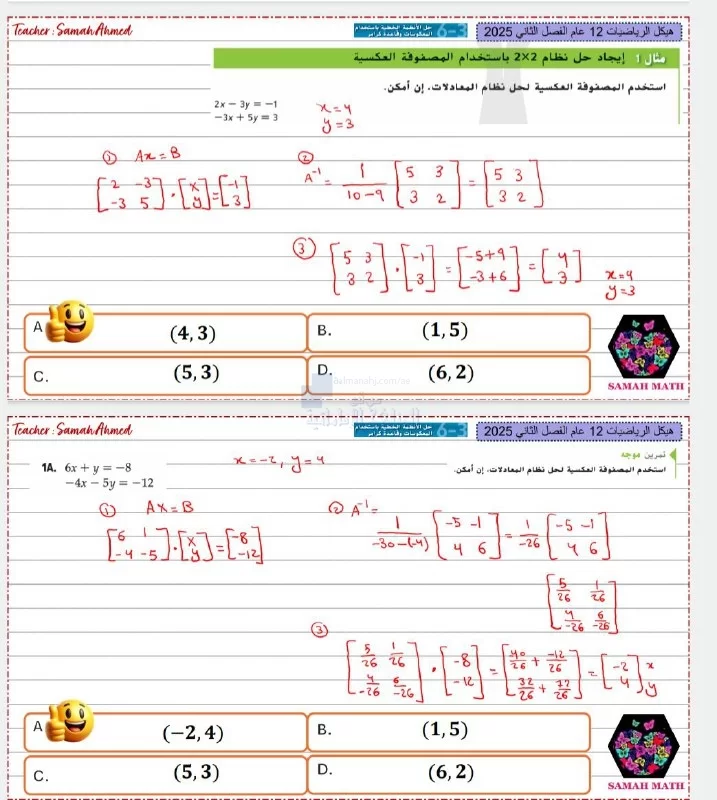 Teacher : Samah Ahmed
حل الأنظمة الخطية باستخدام
المعكوسات وقاعدة كرامر
6-3
هيكل الرياضيات 12 عام الفصل الثاني 2025
مثال 1 إيجاد حل نظام 2×2 باستخدام المصفوفة العكسية
استخدم المصفوفة العكسية لحل نظام المعادلات، إن أمكن.
2x − 3y = −1
−3x + 5y = 3
x=4
y=3
① Ax=B
[2 -3; -3 5] · [x; y] = [-1; 3]
② A⁻¹ = 1/(10-9) [5 3; 3 2] = [5 3; 3 2]
③ [5 3; 3 2] · [-1; 3] = [-5+9; -3+6] = [4; 3]
x=4
y=3
A (4, 3)
B. (1, 5)
C. (5, 3)
D. (6, 2)
SAMAH MATH
almanahj.com/ae
Teacher : Samah Ahmed
حل الأنظمة الخطية باستخدام
المعكوسات وقاعدة كرامر
6-3
هيكل الرياضيات 12 عام الفصل الثاني 2025
تمرين موجه
استخدم المصفوفة العكسية لحل نظام المعادلات، إن أمكن.
1A. 6x + y = −8
−4x − 5y = −12
x=-2, y=4
① AX=B
[6 1; -4 -5] · [x; y] = [-8; -12]
② A⁻¹ = 1/(-30-(-4)) [-5 -1; 4 6] = 1/-26 [-5 -1; 4 6]
[5/26 1/26; 4/-26 6/-26]
③ [5/26 1/26; 4/-26 6/-26] · [-8; -12] = [40/26 + -12/26; 32/26 + 72/26] = [-2; 4] x y
A (−2, 4)
B. (1, 5)
C. (5, 3)
D. (6, 2)
SAMAH MATH